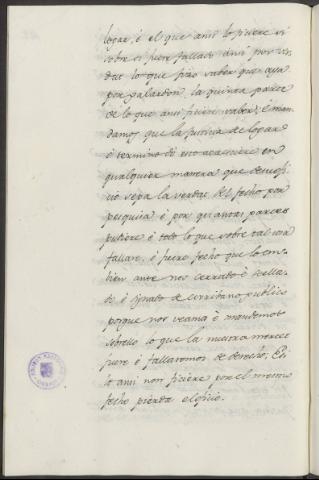 logar, é el que ansi lo ficiere si
sobre si fuere fallado ansi por ver
dat lo que fizo saber que aya
por galardon la quinta parte
de lo que ansi ficiere saber; é man
damos que la justicia de logar
ó termino do esto acaesciere en
qualquier manera que de su ofi
cio sepa la verdat del fecho por
pesquisa é por quantas partes
pudiere é todo lo que sobre tal caso
fallare, é fuere fecho que lo en
bien ante nos cerrado é sella
do é signado de escribano publico
porque nos veamos é mandemos
sobrello lo que la nuestra merced
fuere é fallaremos de derecho; é si
lo ansi non ficiere por el mesmo
fecho pierda el oficio.